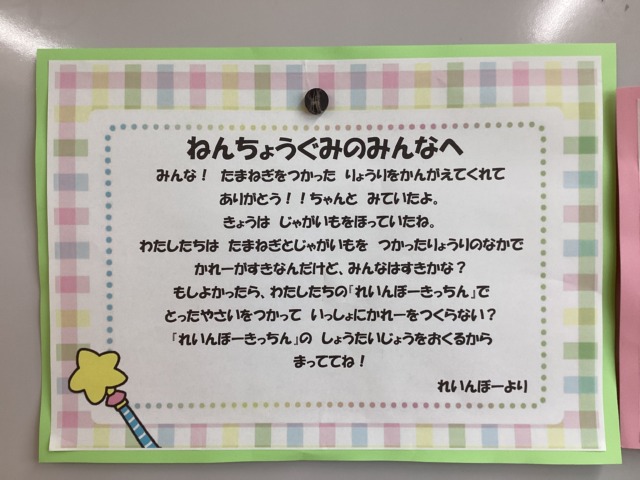 ねんちょうぐみのみんなへ
みんな！ たまねぎをつかった りょうりをかんがえてくれて
ありがとう！！ちゃんと みていたよ。
きょうは じゃがいもをほっていたね。
わたしたちは たまねぎとじゃがいもを つかったりょうりのなかで
かれーがすきなんだけど、みんなはすきかな？
もしよかったら、わたしたちの「れいんぼーきっちん」で
とったやさいをつかって いっしょにかれーをつくらない？
「れいんぼーきっちん」の しょうたいじょうをおくるから
まっててね！
れいんぼーより